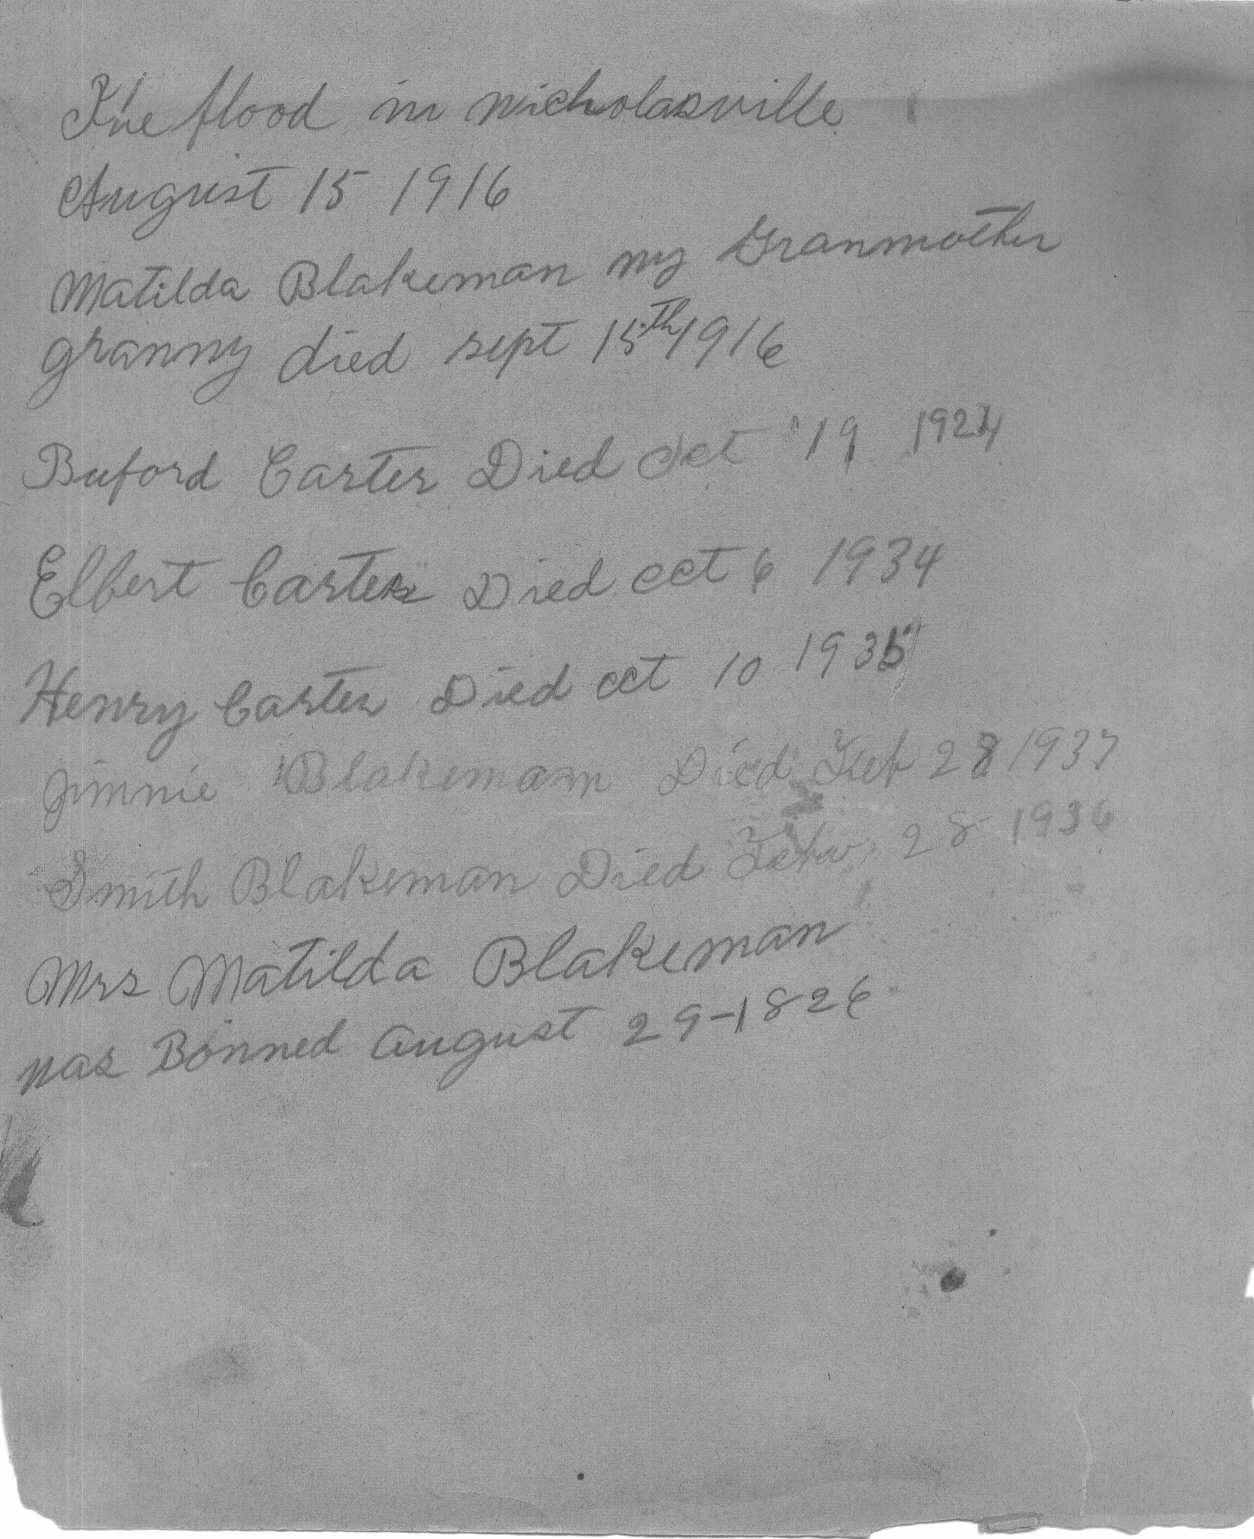 The flood in nicholasville
August 15 1916
Matilda Blakeman my Granmother
granny died sept 15th 1916
Buford Carter Died Oct 19 1924
Elbert Carter Died oct 6 1934
Henry Carter Died oct 10 1935
Jimmie Blakemann Died Feb 28 1937
Smith Blakeman Died Febu, 28 1936
Mrs Matilda Blakeman
was Bonned august 29-1826